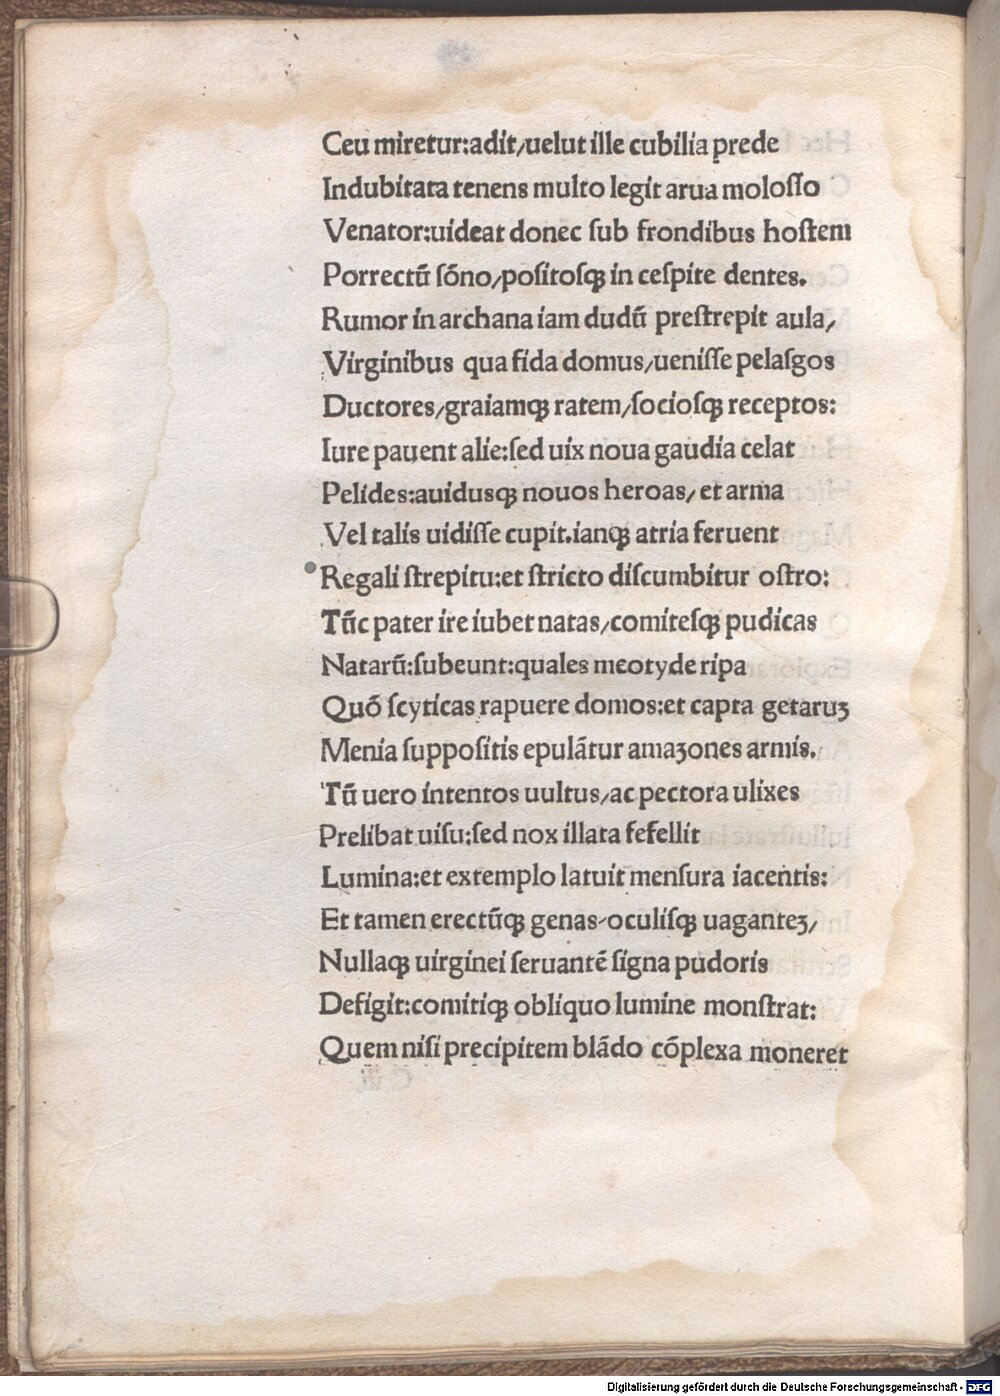 Ceu miretur:adit/uelut ille cubilia prede
Indubitata tenens multo legit arua moloſſo
Venator:uideat donec ſub frondibus hoſtem
Porrectū ſōno/poſitoſqꝫ in ceſpite dentes.
Rumor in archana iam dudū preſtrepit aula/
Virginibus qua fida domus/ueniſſe pelaſgos
Ductores/graiamqꝫ ratem/ſocioſqꝫ receptos:
Iure pauent alie:ſed uix noua gaudia celat
Pelides:auidusqꝫ nouos heroas/et arma
Vel talis uidiſſe cupit.ianqꝫ atria feruent
Regali ſtrepitu:et ſtricto diſcumbitur oſtro:
Tūc pater ire iubet natas/comiteſqꝫ pudicas
Natarū:ſubeunt:quales meotyde ripa
Quō ſcyticas rapuere domos:et capta getaruꝫ
Menia ſuppoſitis epulātur amaʒones armis.
Tū uero intentos uultus/ac pectora ulixes
Prelibat uiſu:ſed nox illata fefellit
Lumina:et extemplo latuit menſura iacentis:
Et tamen erectūqꝫ genas/oculiſqꝫ uaganteꝫ/
Nullaqꝫ uirginei ſeruantē ſigna pudoris
Defigit:comitiqꝫ obliquo lumine monſtrat:
Quem niſi precipitem blādo cōplexa moneret
Digitalisierung gefördert durch die Deutsche Forschungsgemeinschaft - DFG